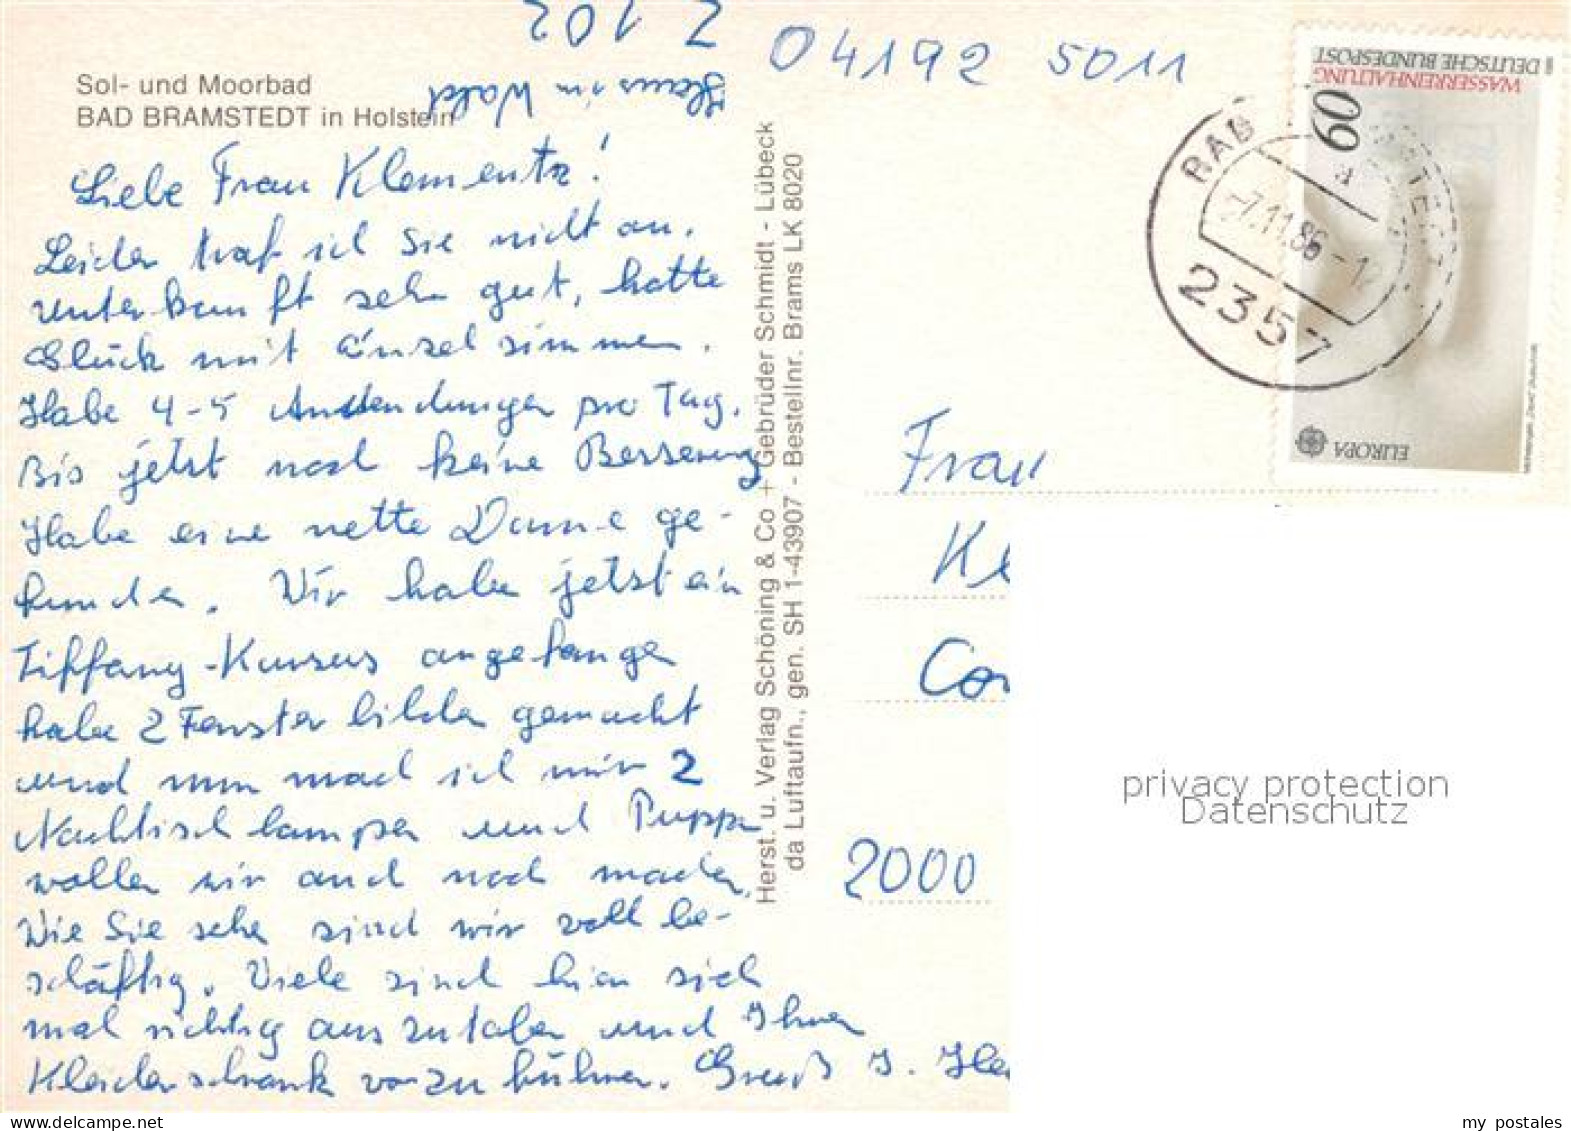 Z 102
Haus im Wald
04192 5011
Sol- und Moorbad
BAD BRAMSTEDT in Holstein
Liebe Frau Klementz!
Leider traf ich Sie nicht an.
Unterkunft sehr gut, hatte
Glück mit Einzelzimmer.
Habe 4-5 Anwendungen pro Tag.
Bis jetzt noch keine Besserung
Habe eine nette Dame ge-
funden. Wir haben jetzt ein
Tiffany-Kursus angefangen
haben 2 Fensterbilder gemacht
und nun mach ich mir 2
Nachtischlampen und Puppen
wollen wir auch noch machen.
Wie Sie sehen sind wir voll be-
schäftig. Viele sind hier sich
mal richtig auszutoben und Ihren
Kleiderschrank vorzuführen. Gruß I. He
Herst. u. Verlag Schöning & Co + Gebrüder Schmidt - Lübeck
da Luftaufn., gen. SH 1-43907 - Bestellnr. Brams LK 8020
DEUTSCHE BUNDESPOST
WASSERREINHALTUNG
60
EUROPA
BAD
-7.11.86-12
2357
Frau
Kl
Cor
2000
privacy protection
Datenschutz
my_postales